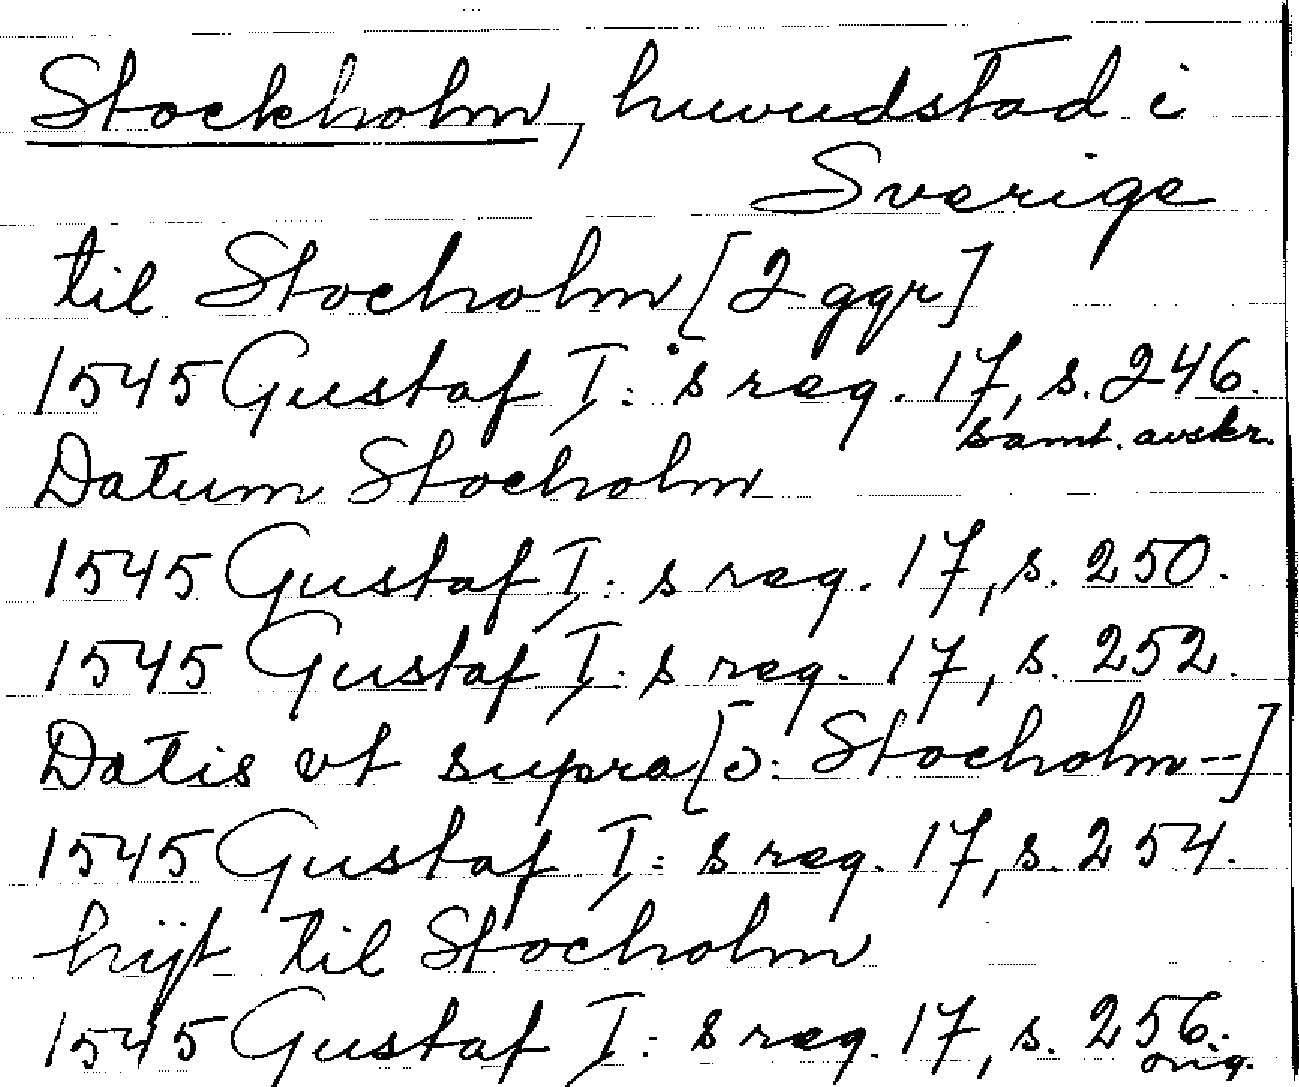 Stockholm, huvudstad i
Sverige
til Stocholm [2 ggr]
1545 Gustaf I:s reg. 17, s. 246.
samt. avskr.
Datum Stocholm
1545 Gustaf I:s reg. 17, s. 250.
1545 Gustaf I:s reg. 17, s. 252.
Datis vt supra [ɔ: Stocholm--]
1545 Gustaf I:s reg. 17, s. 254.
hijt til Stocholm
1545 Gustaf I:s reg. 17, s. 256.
orig.